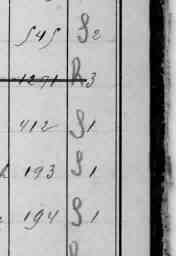 545 S 2
1291 R 3
412 S 1
193 S 1
194 S 1